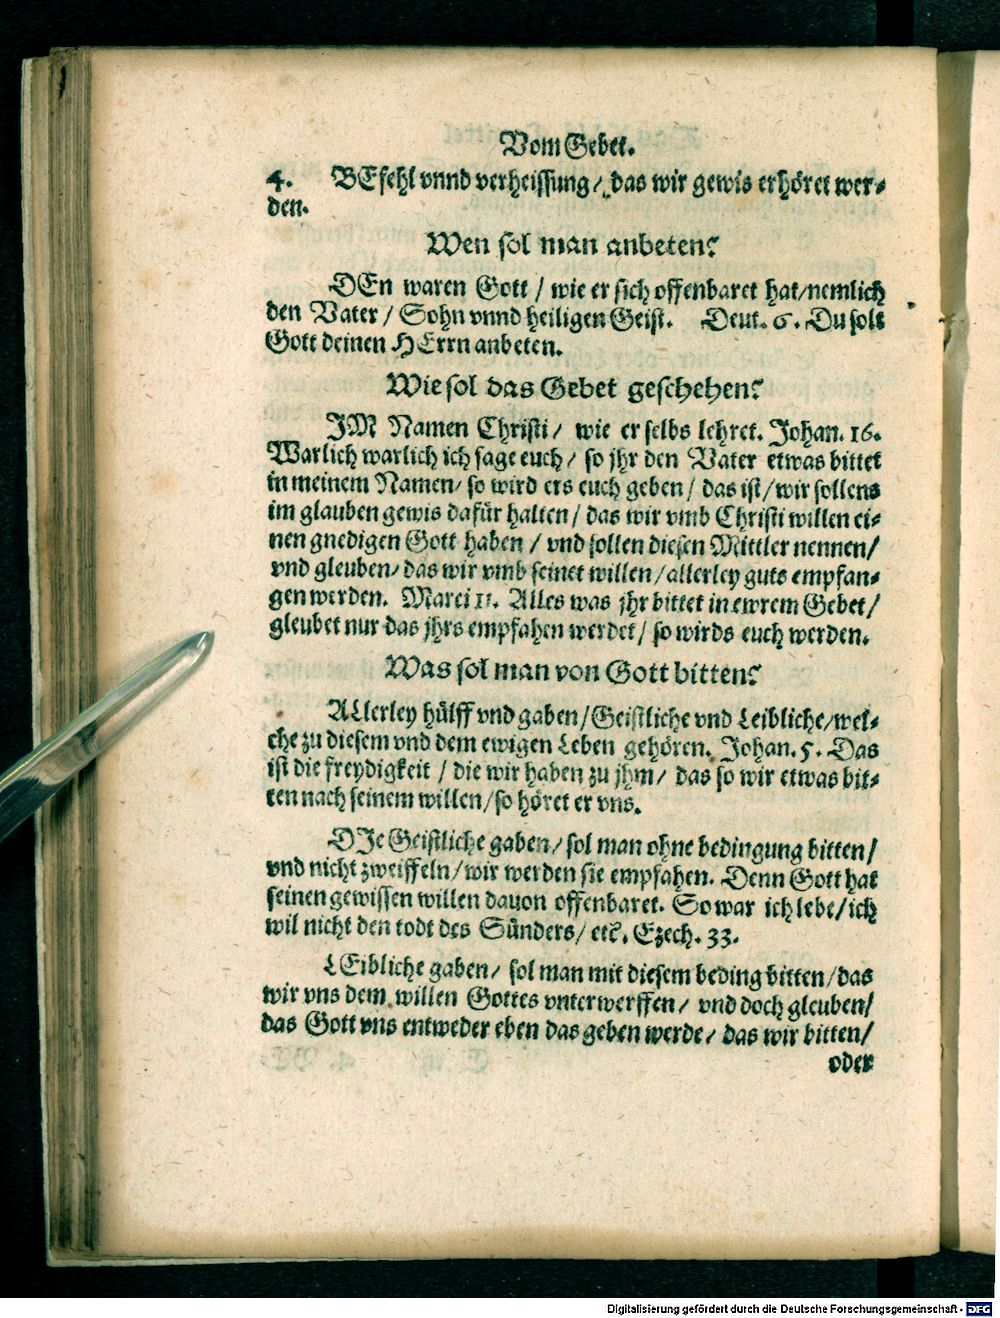 Vom Gebet.
4. BEfehl vnnd verheissung / das wir gewis erhöret wer-
den.
Wen sol man anbeten?
DEn waren Gott / wie er sich offenbaret hat/nemlich
den Vater / Sohn vnnd heiligen Geist. Deut. 6. Du solt
Gott deinen HErrn anbeten.
Wie sol das Gebet geschehen?
IM Namen Christi / wie er selbs lehret. Johan. 16.
Warlich warlich ich sage euch / so jhr den Vater etwas bittet
in meinem Namen/ so wird ers euch geben / das ist / wir sollens
im glauben gewis dafür halten / das wir vmb Christi willen ei-
nen gnedigen Gott haben / vnd sollen diesen Mittler nennen/
vnd gleuben/ das wir vmb seinet willen / allerley guts empfan-
gen werden. Marci 11. Alles was jhr bittet in ewrem Gebet/
gleubet nur das jhrs empfahen werdet / so wirds euch werden.
Was sol man von Gott bitten?
ALlerley hülff vnd gaben / Geistliche vnd Leibliche/wel-
che zu diesem vnd dem ewigen Leben gehören. Johan. 5. Das
ist die freydigkeit / die wir haben zu jhm / das so wir etwas bit-
ten nach seinem willen / so höret er vns.
DIe Geistliche gaben / sol man ohne bedingung bitten /
vnd nicht zweiffeln / wir werden sie empfahen. Denn Gott hat
seinen gewissen willen dauon offenbaret. So war ich lebe / ich
wil nicht den todt des Sünders / etc. Ezech. 33.
LEibliche gaben / sol man mit diesem beding bitten / das
wir vns dem willen Gottes vnterwerffen / vnd doch gleuben/
das Gott vns entweder eben das geben werde / das wir bitten/
oder
Digitalisierung gefördert durch die Deutsche Forschungsgemeinschaft - DFG